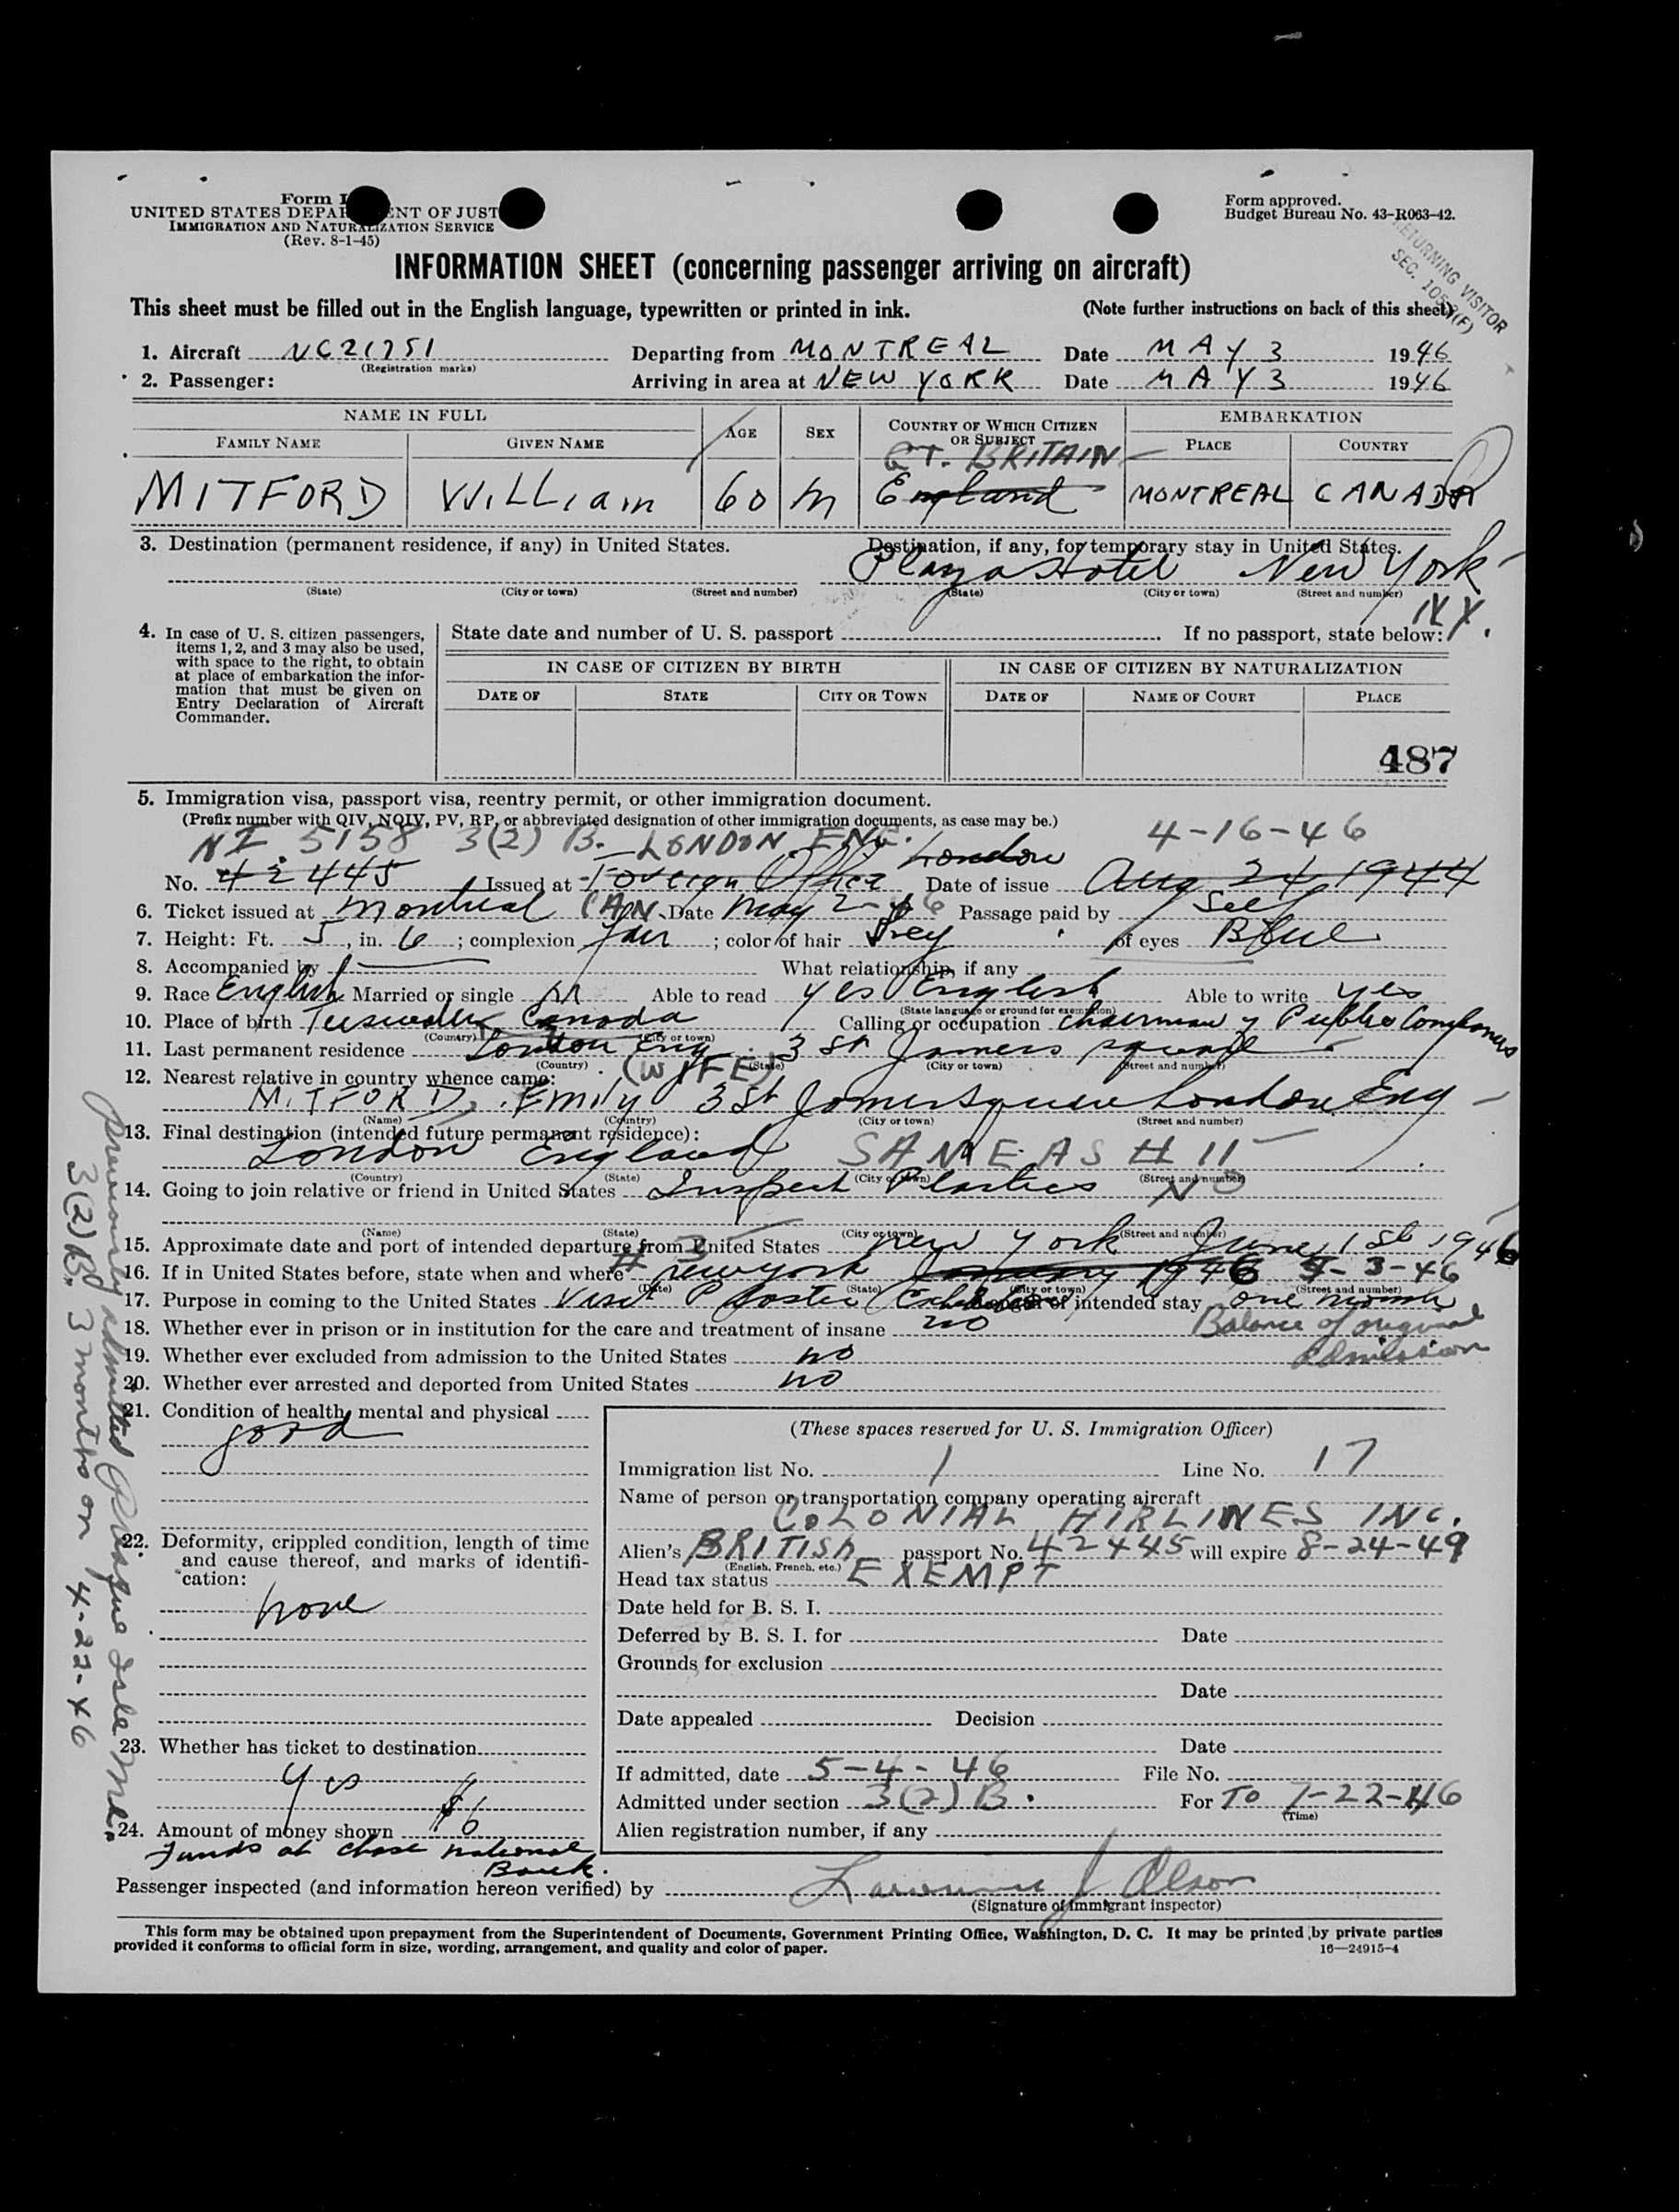 Form I
UNITED STATES DEPAR ENT OF JUST
IMMIGRATION AND NATURALIZATION SERVICE
(Rev. 8-1-45)
Form approved.
Budget Bureau No. 43-R063-42.
RETURNING VISITOR
SEC.
INFORMATION SHEET (concerning passenger arriving on aircraft)
This sheet must be filled out in the English language, typewritten or printed in ink. (Note further instructions on back of this sheet)
1. Aircraft NC21751 Departing from MONTREAL Date MAY 3 1946
(Registration marks)
2. Passenger: Arriving in area at NEW YORK Date MAY 3 1946
NAME IN FULL AGE SEX COUNTRY OF WHICH CITIZEN OR SUBJECT EMBARKATION
FAMILY NAME GIVEN NAME PLACE COUNTRY
GT. BRITAIN
MITFORD WILLIAM 60 M England MONTREAL CANADA
3. Destination (permanent residence, if any) in United States. Destination, if any, for temporary stay in United States.
Plaza Hotel New York
(State) (City or town) (Street and number) (State) (City or town) (Street and number)
4. In case of U. S. citizen passengers, items 1, 2, and 3 may also be used, with space to the right, to obtain at place of embarkation the information that must be given on Entry Declaration of Aircraft Commander.
State date and number of U. S. passport If no passport, state below:
IN CASE OF CITIZEN BY BIRTH IN CASE OF CITIZEN BY NATURALIZATION
DATE OF STATE CITY OR TOWN DATE OF NAME OF COURT PLACE
487
5. Immigration visa, passport visa, reentry permit, or other immigration document.
(Prefix number with QIV, NQIV, PV, RP, or abbreviated designation of other immigration documents, as case may be.)
NI 5158 3(2) B. LONDON ENG. 4-16-46
No. 42445 Issued at Foreign Office London Date of issue Aug 24 1944
6. Ticket issued at Montreal CAN. Date May 2-46 Passage paid by Self
7. Height: Ft. 5, in. 6; complexion Fair; color of hair Grey of eyes Blue
8. Accompanied by What relationship, if any
9. Race English Married or single M Able to read yes English Able to write yes
(State language or ground for exemption)
10. Place of birth Canada Calling or occupation Chairman of Public Companies
(Country) (City or town)
11. Last permanent residence London Eng. 3 St James Square
(Country) (State) (City or town) (Street and number)
12. Nearest relative in country whence came: (WIFE)
MITFORD, Emily 3 St James Square London Eng
(Name) (Country) (City or town) (Street and number)
13. Final destination (intended future permanent residence):
London England SAME AS # 11
(Country) (State) (City or town) (Street and number)
14. Going to join relative or friend in United States Inspect Plastics NO
(Name) (State) (City or town) (Street and number)
15. Approximate date and port of intended departure from United States New York June 1st 1946
16. If in United States before, state when and where New York January 1946 -3-46
(Date) (State) (City or town) (Street and number)
17. Purpose in coming to the United States Visit Plastic Exhibition of intended stay one month
18. Whether ever in prison or in institution for the care and treatment of insane no
Balance of original admission
19. Whether ever excluded from admission to the United States no
20. Whether ever arrested and deported from United States no
21. Condition of health, mental and physical
good
22. Deformity, crippled condition, length of time and cause thereof, and marks of identification:
none
23. Whether has ticket to destination
Yes
24. Amount of money shown $6
Funds at Chase National Bank.
(These spaces reserved for U. S. Immigration Officer)
Immigration list No. 1 Line No. 17
Name of person or transportation company operating aircraft
COLONIAL AIRLINES INC.
Alien's BRITISH passport No. 42445 will expire 8-24-49
(English, French, etc.)
Head tax status EXEMPT
Date held for B. S. I.
Deferred by B. S. I. for Date
Grounds for exclusion
Date
Date appealed Decision
Date
If admitted, date 5-4-46 File No.
Admitted under section 3(2) B. For TO 7-22-46
(Time)
Alien registration number, if any
Passenger inspected (and information hereon verified) by J Olson
(Signature of immigrant inspector)
This form may be obtained upon prepayment from the Superintendent of Documents, Government Printing Office, Washington, D. C. It may be printed by private parties
provided it conforms to official form in size, wording, arrangement, and quality and color of paper. 16—24915-4
previously admitted Presque Isle Me.
3(2)B. 3 months on 4-22-46